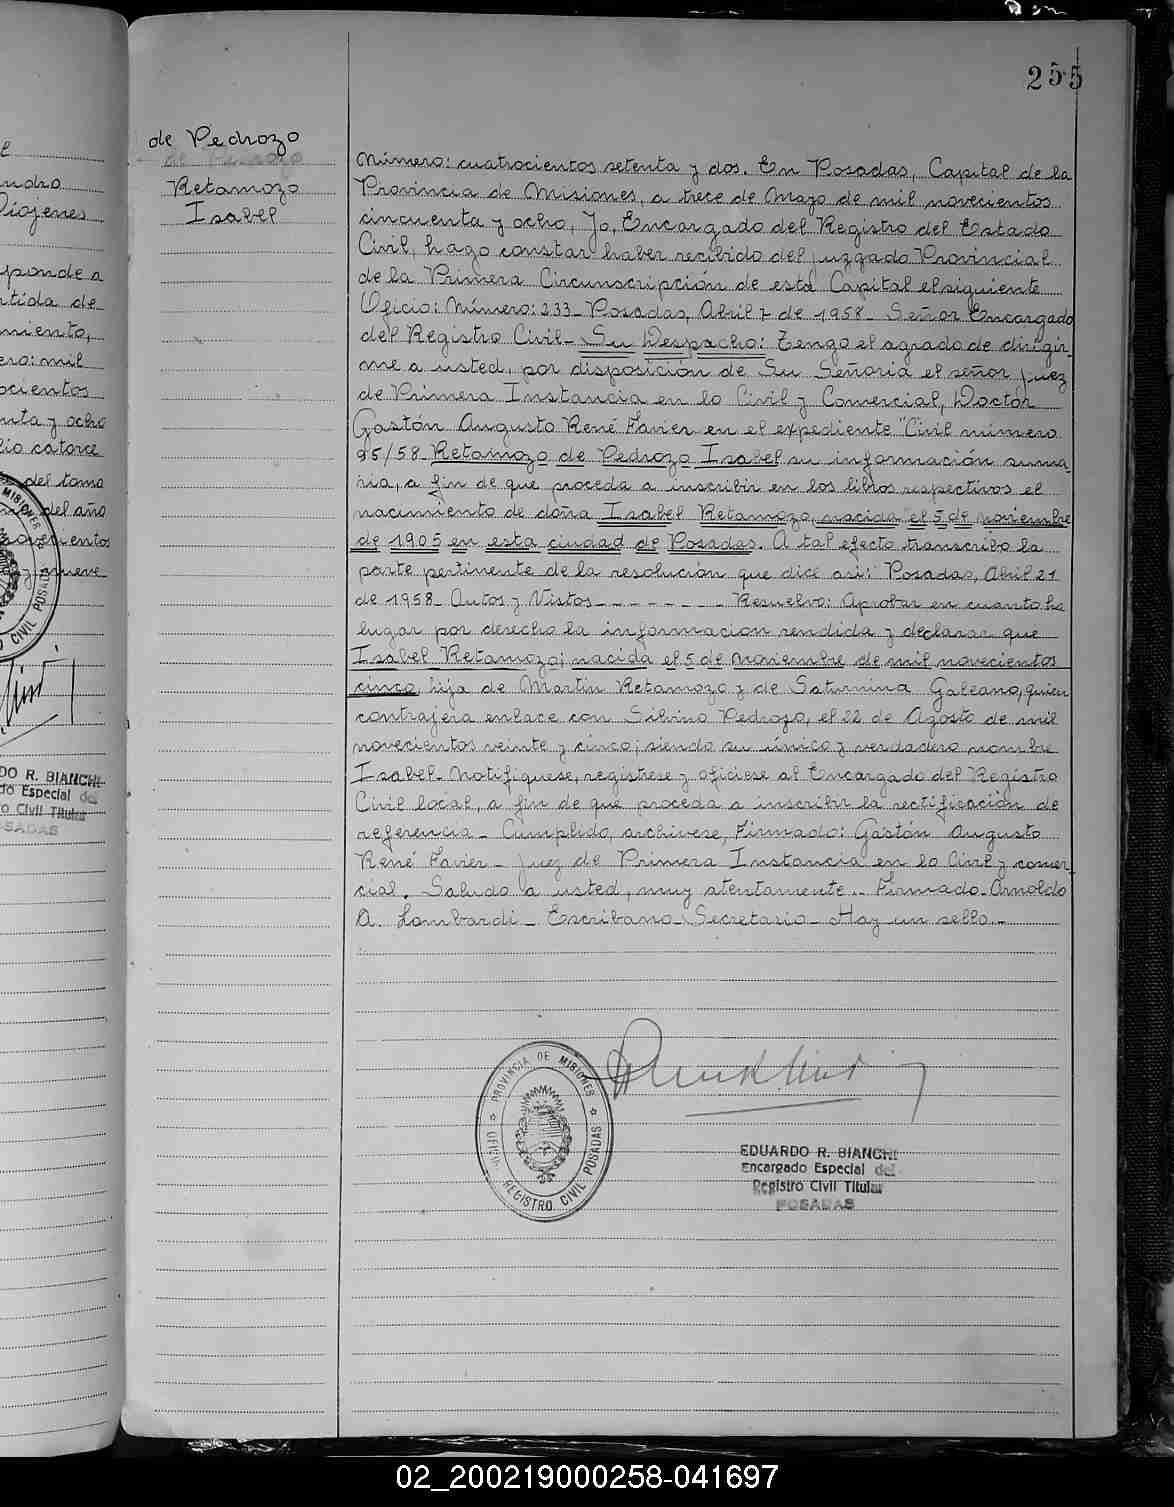 255
e
andro
Diojenes
ponde a
rtida de
miento,
ero: mil
ocientos
nta y ocho
lio catorce
del tomo
del año
novecientos
y nueve
DO R. BIANCHI
do Especial del
o Civil Titular
OSADAS
de Pedrozo
Retamozo
Isabel
Número: cuatrocientos setenta y dos. En Posadas, Capital de la
Provincia de Misiones, a trece de Mayo de mil novecientos
cincuenta y ocho, Yo, Encargado del Registro del Estado
Civil, hago constar haber recibido del Juzgado Provincial
de la Primera Circunscripción de esta Capital el siguiente
Oficio: Número: 233_ Posadas, Abril 7 de 1958_ Señor Encargado
del Registro Civil_ Su Despacho: Tengo el agrado de dirigir_
me a usted, por disposición de Su Señoria el señor Juez
de Primera Instancia en lo Civil y Comercial, Doctor
Gastón Augusto René Favier en el expediente "Civil número
95/58_ Retamozo de Pedrozo Isabel su información suma_
ria, a fin de que proceda a inscribir en los libros respectivos el
nacimiento de doña Isabel Retamozo, nacida el 5 de noviembre
de 1905 en esta ciudad de Posadas. A tal efecto transcribo la
parte pertinente de la resolución que dice asi: Posadas, Abril 21
de 1958_ Autos y Vistos_ _ _ _ _ _ _ Resuelvo: Aprobar en cuanto ha
lugar por derecho la informacion rendida y declarar que
Isabel Retamozo; nacida el 5 de noviembre de mil novecientos
cinco hija de Martin Retamozo y de Saturnina Galeano, quien
contrajera enlace con Silvino Pedrozo, el 22 de Agosto de mil
novecientos veinte y cinco; siendo su único y verdadero nombre
Isabel_ Notifiquese, registrese y oficiese al Encargado del Registro
Civil local, a fin de que proceda a inscribir la rectificación de
referencia_ Cumplido, archivese, Firmado: Gastón Augusto
René Favier_ Juez de Primera Instancia en lo Civil y comer_
cial. Saludo a usted, muy atentamente._ Firmado_ Arnoldo
A. Lombardi_ Escribano_ Secretario_ Hay un sello._
PROVINCIA DE MISIONES
REGISTRO CIVIL POSADAS
EDUARDO R. BIANCHI
Encargado Especial del
Registro Civil Titular
POSADAS
02_200219000258-041697